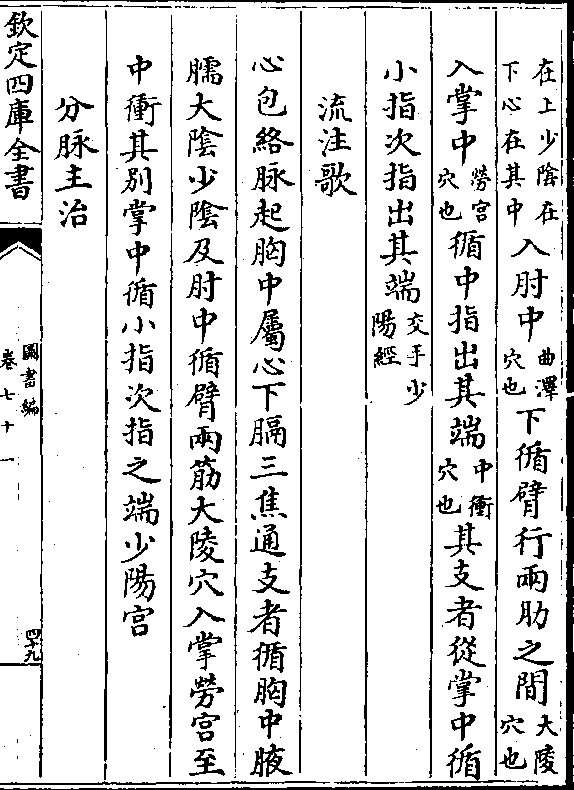 在上少陰在下心在其中入肘中曲澤穴也下循臂行兩肋之間大陵穴也
入掌中勞宫穴也循中指出其端中衝穴也其支者從掌中循
小指次指出其端交手少陽經
流注歌
心包絡脉起胸中屬心下膈三焦通支者循胸中腋
臑大陰少陰及肘中循臂兩筋大陵穴入掌勞宫至
中衝其别掌中循小指次指之端少陽宫
分脉主治
欽定四庫全書
圖書編
卷七十一
四十九